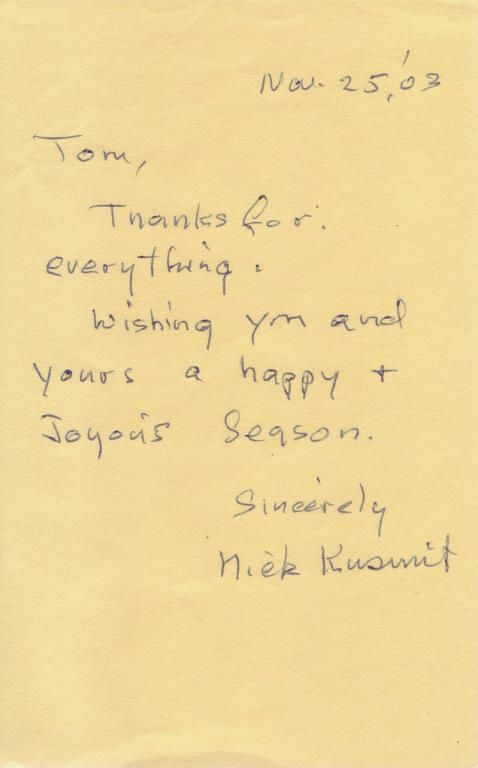 Nov. 25,'03
Tom,
Thanks for
everything.
Wishing you and
yours a happy +
Joyous Season.
Sincerely
Nick